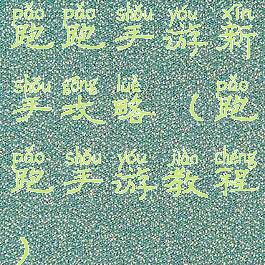 pǎo pǎo shǒu yóu xīn
跑跑手游新
shǒu gōng lüè pǎo
手攻略(跑
pǎo shǒu yóu jiào chéng
跑手游教程
)